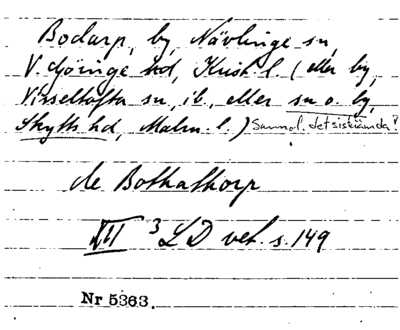 Bodarp, by, Nävlinge sn,
V. Göinge hd, Krist. l. (eller by,
Visseltofta sn, ib., eller sn o. by,
Skytts hd, Malm. l.) Sannol. det sistnämnda?
de Bothathorp
XII 3 LD vet. s. 149
Nr 5363.